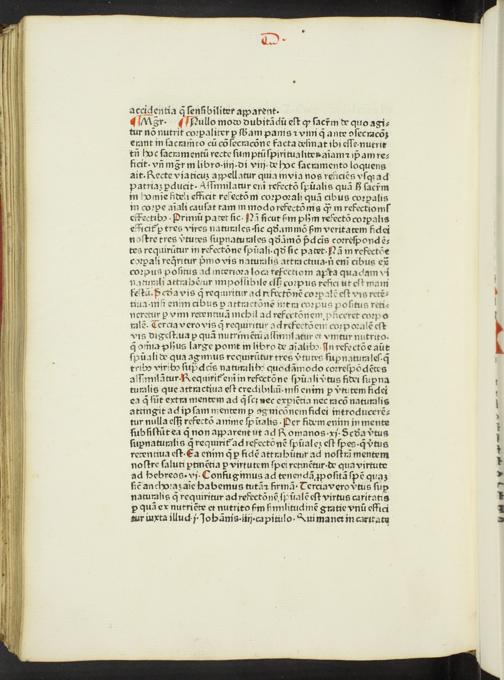 D
accidentia q̄ sensibiliter apparent·
Mg̃r· Nullo modo dubitādū est qꝫ sacr̄m de quo agi-
tur nō nutrit corꝑaliter ꝑ sb̄am panis ⁊ vini q̄ ante ↄsecracōꝫ
erant in sacram̄to cū cōsecracōne facta desināt ibi esse· nutrit
tn̄ hoc sacramentū recte sumptū spiritualiter aīam ⁊ ip̄am re-
ficit· vn̄ mg̃r in libro·iiii·di·viii·de hoc sacramento loquens
ait· Recte viaticū appellatur quia in via nos reficiēs vsqꝫ ad
patriaꝫ ꝑducit· Assimilatur eni refectō sp̄ualis quā h̄ sacr̄m
in homīe fideli efficit refectōni corporali quā cibus corꝑalis
in corꝑe aīali causat tam in modo refectōnis qꝫ in refectionis
effectibꝫ· Primū patet sic· Nā sicut sm̄ ph̄m refectō corꝑalis
efficit᷑ ꝑ tres vires naturales· sic qd̄āmō sm̄ veritatem fidei
nostre tres v̄tutes sup̄naturales qd̄āmō p̄dc̄is correspondē-
tes requirūtur in refectōne sp̄uali· qd̄ sic patet· Nā in refectōe
corꝑali req̄ritur p̄mo vis naturalis attractiua· ni eni cibus ex̄
corpus positus ad interiora loca refectioni apta quadam vi
naturali attrahetur impossibile ess̄ꝫ corpus refici vt est mani
festū· Sc̄da vis q̄ requirit᷑ ad refectōnē corꝑalē est vis retē-
tiua· nisi enim cibus ꝑ attractōnē intra corpus positus reti-
neretur ꝑ vim retentiuā nichil ad refectōnem ꝓficeret corpo
ralē· Tercia vero vis q̄ requirit᷑ ad refectōem corꝑalē est
vis digestiua ꝑ quā nutrimētū assimilatur et vnitur nutrito·
q̄ om̄ia ph̄us large ponit in libro de aīalibꝫ· In refectōe aūt
sp̄uali de qua agimus requirūtur tres v̄tutes sup̄naturales· q̄
tribꝫ viribꝫ sup̄dc̄is naturalibꝫ quodāmodo correspōdētes
assimilātur· Requirit᷑ eni in refectōne sp̄uali v̄tus fidei sup̄na
turalis que attractiua est credibiliū· nisi enim ꝑ v̄tutem fidei
ea q̄ sūt extra mentem ad q̄ scꝫ nec exꝑiētia nec racō naturalis
attingit ad ip̄sam mentem ꝑ ogniconem fidei introducerē-
tur nulla ess̄ꝫ refectō anime sp̄ualis· Per fidem enim in mente
subsistūt ea q̄ non apparent vt ad Romanos·xj· Sc̄da v̄tus
sup̄naturalis q̄ requirit᷑ ad refectōnē sp̄ualeꝫ est spes· q̄ v̄tus
retentiua est· Ea enim q̄ ꝑ fidē attrahūtur ad nostrā mentem
nostre saluti ꝑtinētia ꝑ virtutem spei retinētur· de qua virtute
ad hebreos·vj· Confugimus ad tenendā ꝓpositā spē quaꝫ
sic̄ anchoraꝫ aīe habemus tutā ⁊ firmā· Tercia vero v̄tus sup̄
naturalis q̄ requirit᷑ ad refectōnē sp̄ualē est virtus caritatis
ꝑ quā ex nutriēte et nutrito sm̄ similitudinē gratie vnū effici
tur iuxta illud·j·Johānis·iiij·capitulo· Qui manet in caritate